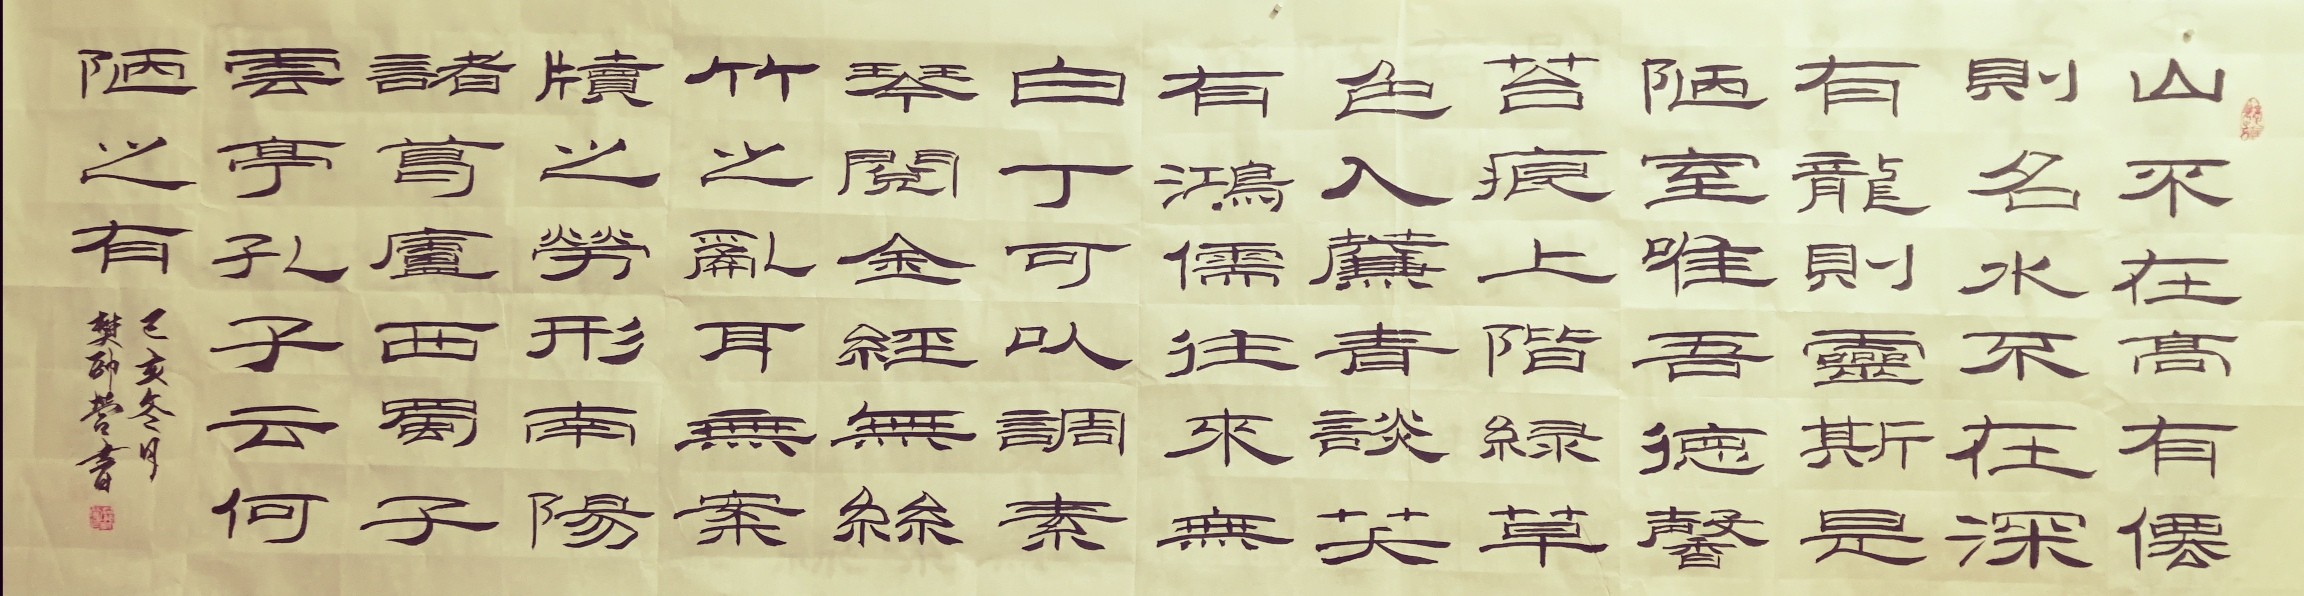 山不在高有僊
則名水不在深
有龍則靈斯是
陋室唯吾德馨
苔痕上階綠草
色入簾青談笑
有鴻儒往來無
白丁可以調素
琴閱金經無絲
竹之亂耳無案
牘之勞形南陽
諸葛廬西蜀子
雲亭孔子云何
陋之有
己亥冬月
樊營書